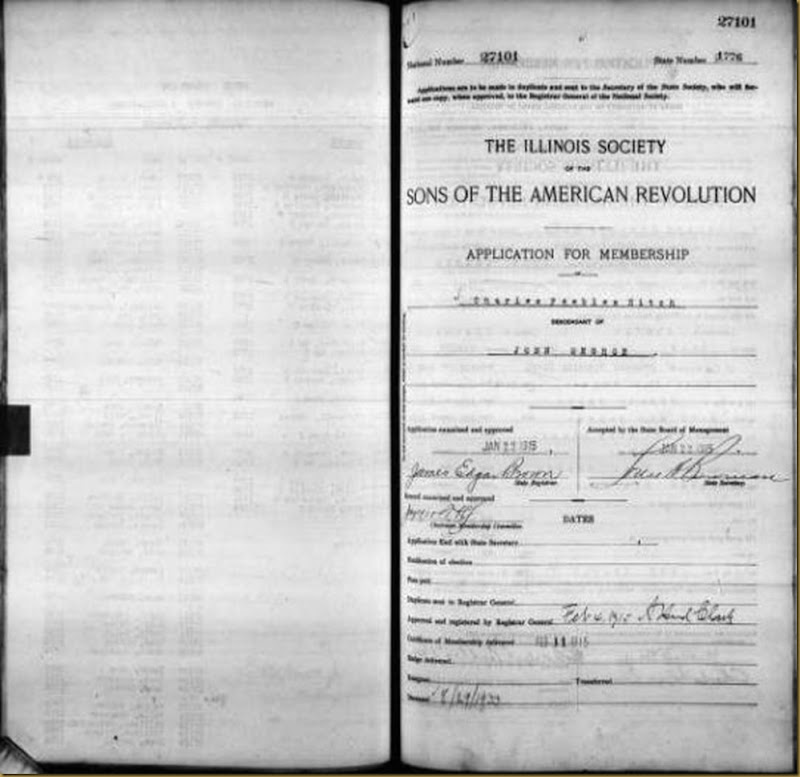 27101
National Number 27101 State Number 1776
Applications are to be made in duplicate and sent to the Secretary of the State Society, who will forward one copy, when approved, to the Registrar General of the National Society.
THE ILLINOIS SOCIETY
OF THE
SONS OF THE AMERICAN REVOLUTION
APPLICATION FOR MEMBERSHIP
OF
Charles Peebles Hitch
DESCENDANT OF
JOHN GEORGE
Application examined and approved Accepted by the State Board of Management
JAN 22 1915, JAN 22 1915
James Edgar Brown
State Registrar State Secretary
Board examined and approved
Chairman Membership Committee
DATES
Application filed with State Secretary
Notification of election
Fees paid
Duplicate sent to Registrar General
Approved and registered by Registrar General Feb 6, 1915 A Howard Clark
Certificate of Membership delivered FEB 11 1915
Badge delivered
Resigned Transferred
Deceased 8/29/1933